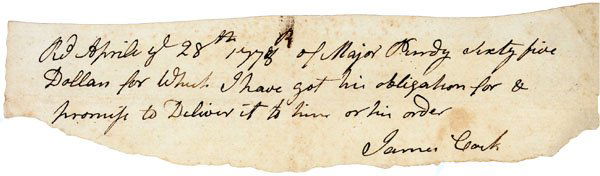 Rd Aprile ye 28th 1778 of Major Purdy Sixty five
Dollars for Which I have got his obligation for &
promise to Deliver it to him or his order
James Cock